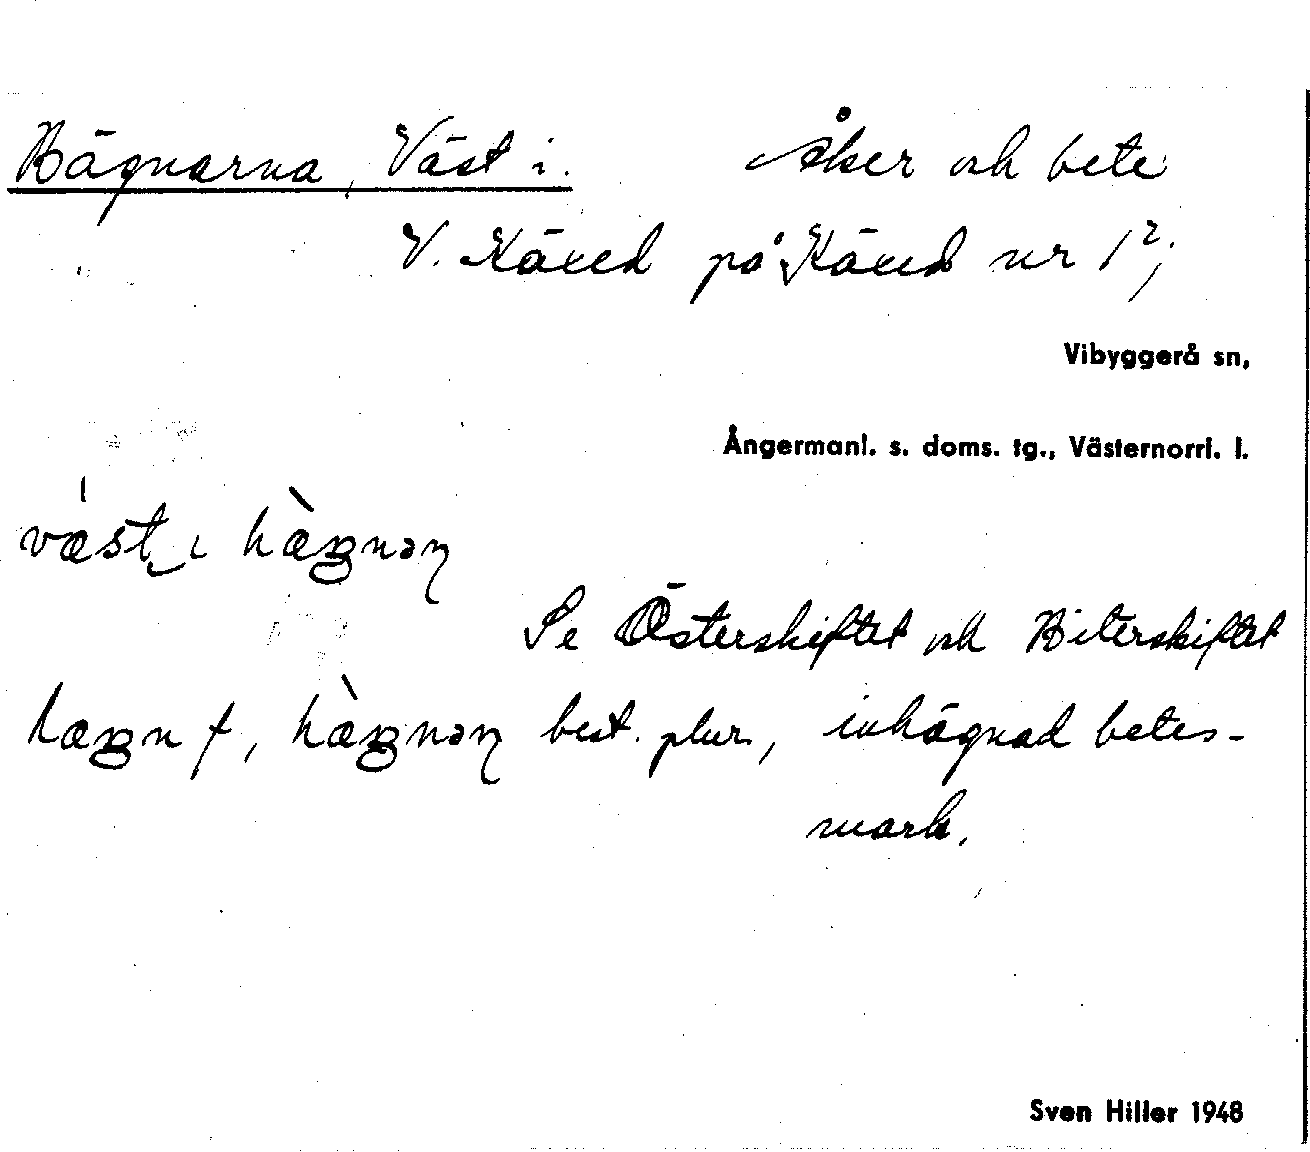 Hägnarna, Väst i. Åker och bete
V. Käxed på Käxed nr 1²;
Vibyggerå sn,
Ångermanl. s. doms. tg., Västernorrl. l.
væst ɩ hæ̀gnəɲ
Se Österskiftet och Heterskiftet
hægn f, hæ̀gnəɲ best. plur., inhägnad betes-
mark.
Sven Hiller 1948